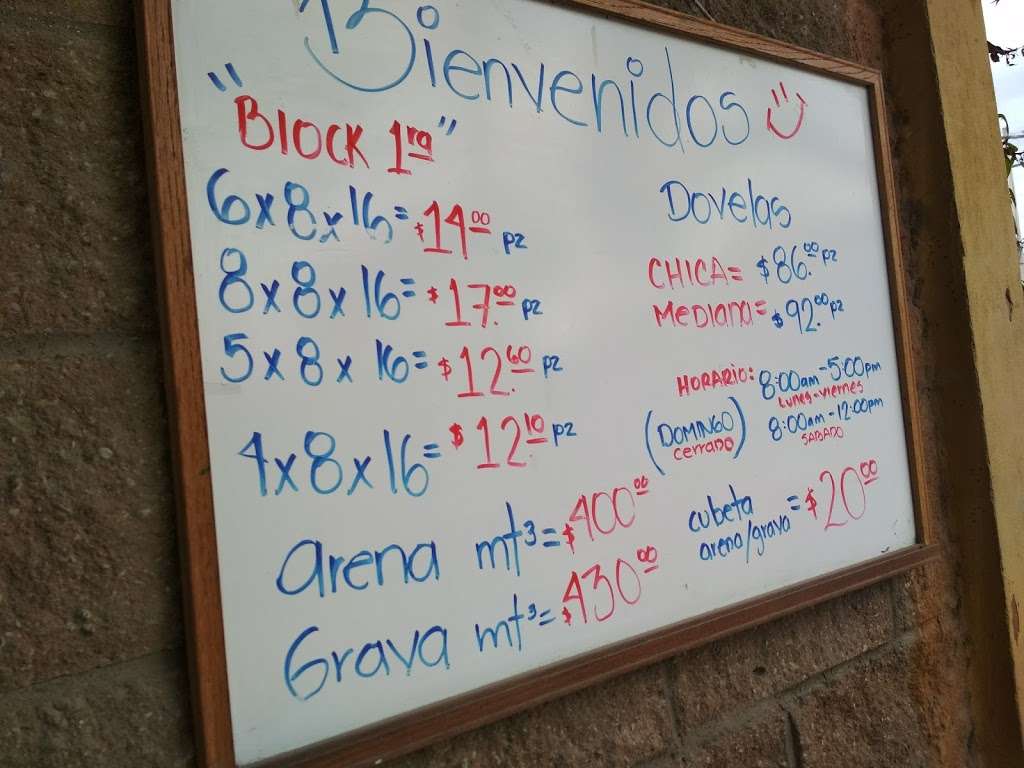 Bienvenidos
"BLOCK 1ra"
6x8x16= $14.00 pz
8x8x16= $17.00 pz
5x8x16= $12.60 pz
4x8x16= $12.10 pz
arena mt³= $400.00
Grava mt³= $430.00
Dovelas
CHICA= $86.00 pz
Mediana= $92.00 pz
HORARIO: 8:00am-5:00pm
Lunes-viernes
(DOMINGO cerrado) 8:00am-12:00pm
SABADO
cubeta
arena/grava = $20.00